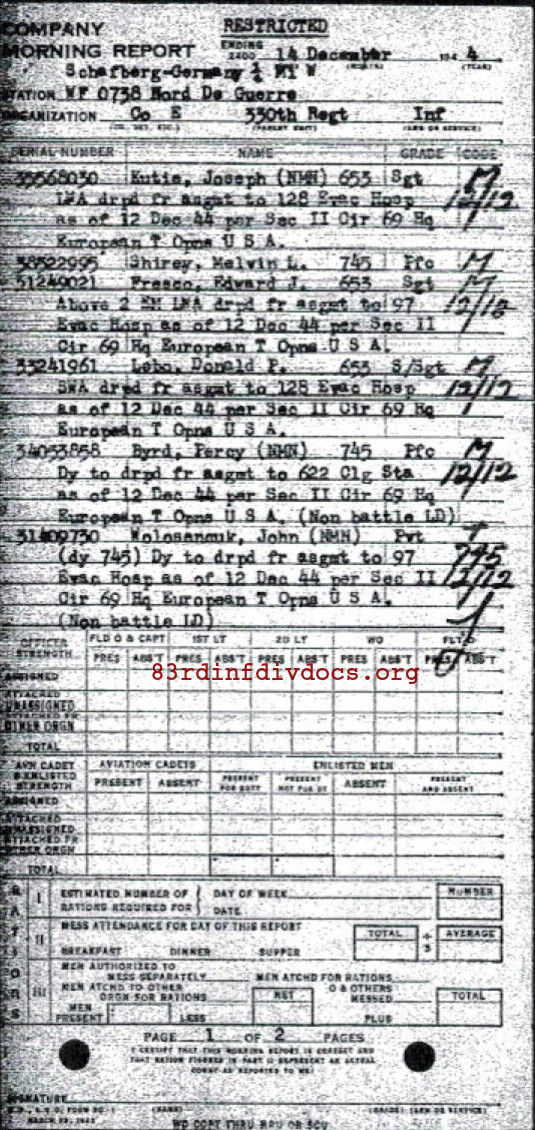 RESTRICTED
COMPANY
MORNING REPORT ENDING 2400 14 December 194 4
Schafberg-Germany ¼ MI W
STATION WF 0738 Nord De Guerre
ORGANIZATION Co E 330th Regt Inf
SERIAL NUMBER NAME GRADE CODE
35568030 Kutis, Joseph (NMN) 653 Sgt M
LWA drpd fr asgmt to 128 Evac Hosp 12/12
as of 12 Dec 44 per Sec II Cir 69 Hq
European T Opns U S A.
38522995 Shirey, Melvin L. 745 Pfc M
51249021 Fresco, Edward J. 653 Sgt M
Above 2 EM LWA drpd fr asgmt to 97
Evac Hosp as of 12 Dec 44 per Sec II
Cir 69 Hq European T Opns U S A.
33241961 Lebo, Donald P. 653 S/Sgt M
SWA drpd fr asgmt to 128 Evac Hosp 12/12
as of 12 Dec 44 per Sec II Cir 69 Hq
European T Opns U S A.
34053858 Byrd, Percy (NMN) 745 Pfc M
Dy to drpd fr asgmt to 622 Clg Sta 12/12
as of 12 Dec 44 per Sec II Cir 69 Hq
European T Opns U S A. (Non battle LD)
31409730 Wolosencuk, John (NMN) Pvt
(dy 745) Dy to drpd fr asgmt to 97 745
Evac Hosp as of 12 Dec 44 per Sec II 12/12
Cir 69 Hq European T Opns U S A.
(Non battle LD)
OFFICER STRENGTH FLD O & CAPT 1ST LT 2D LT WO FLT O
PRES ABS'T PRES ABS'T PRES ABS'T PRES ABS'T PRES ABS'T
83rdinfdivdocs.org
ASSIGNED
ATTACHED
UNASSIGNED
ATTACHED FR
OTHER ORGN
TOTAL
AVN CADET & ENLISTED STRENGTH AVIATION CADETS ENLISTED MEN
PRESENT ABSENT PRESENT FOR DUTY PRESENT NOT FOR DY ABSENT PRESENT AND ABSENT
ASSIGNED
ATTACHED
UNASSIGNED
ATTACHED FR
OTHER ORGN
TOTAL
RATIONS
I ESTIMATED NUMBER OF RATIONS REQUIRED FOR DAY OF WEEK NUMBER
DATE
II MESS ATTENDANCE FOR DAY OF THIS REPORT TOTAL ÷ 3 AVERAGE
BREAKFAST DINNER SUPPER
III MEN AUTHORIZED TO MESS SEPARATELY MEN ATCHD FOR RATIONS
MEN ATCHD TO OTHER ORGN FOR RATIONS NET O & OTHERS MESSED TOTAL
MEN PRESENT LESS PLUS
PAGE 1 OF 2 PAGES
I CERTIFY THAT THIS MORNING REPORT IS CORRECT AND
THAT RATION FIGURES IN PART II REPRESENT AN ACTUAL
COUNT AS REPORTED TO ME:
SIGNATURE
W.D., A.G.O. FORM NO. 1 (NAME) (GRADE) (ARM OR SERVICE)
WD COPY THRU MRU OR SCU